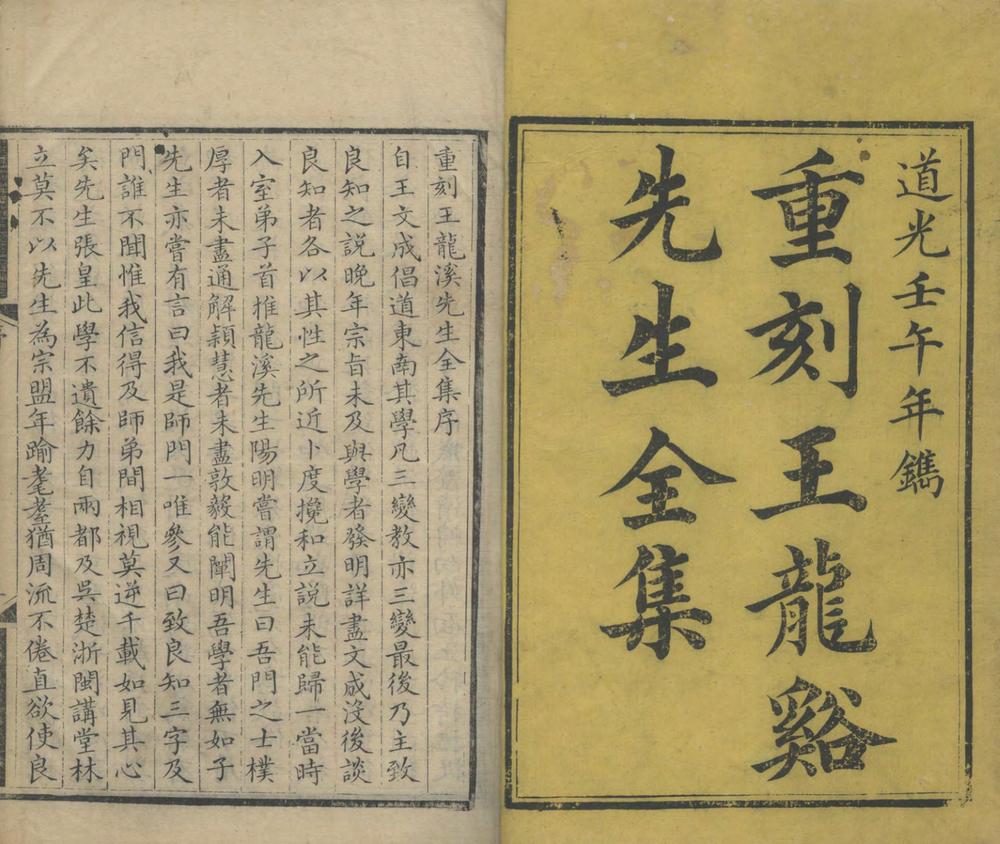 道光壬午年鐫
重刻王龍谿
先生全集
重刻王龍溪先生全集序
自王文成倡道東南其學凡三變教亦三變最後乃主致
良知之説晚年宗旨未及與學者發明詳盡文成沒後談
良知者各以其性之所近卜度攙和立説未能歸一當時
入室弟子首推龍溪先生陽明嘗謂先生曰吾門之士樸
厚者未盡通解頴慧者未盡敦毅能闡明吾學者無如子
先生亦嘗有言曰我是師門一唯參又曰致良知三字及
門誰不聞惟我信得及師弟間相視莫逆千載如見其心
矣先生張皇此學不遺餘力自兩都及吳楚浙閩講堂林
立莫不以先生為宗盟年踰耄耋猶周流不倦直欲使良